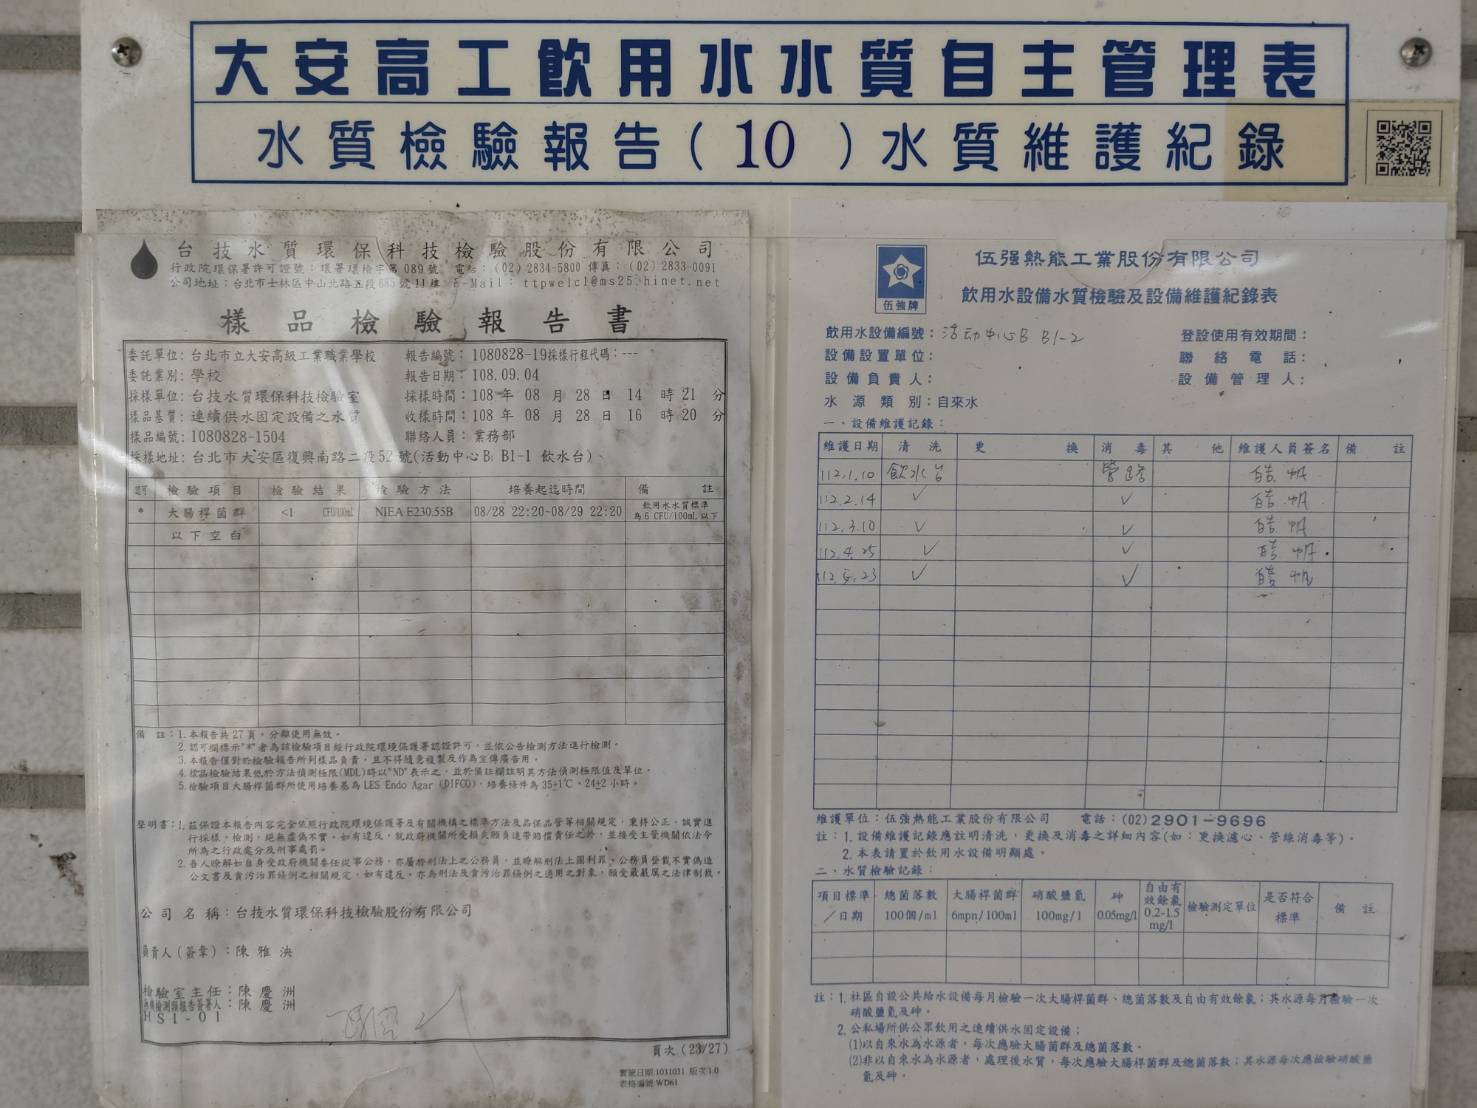 大安高工飲用水水質自主管理表
水質檢驗報告(10)水質維護紀錄
台技水質環保科技檢驗股份有限公司
行政院環保署許可證號:環署環檢字第089號 電話:(02)2834-5800 傳真:(02)2833-0091
公司地址:台北市士林區中山北路五段685號11樓 E-Mail: ttpwelcl@ms25.hinet.net
樣品檢驗報告書
委託單位:台北市立大安高級工業職業學校 報告編號:1080828-19採樣行程代碼:---
委託業別:學校 報告日期:108.09.04
採樣單位:台技水質環保科技檢驗室 採樣時間:108年08月28日14時21分
樣品基質:連續供水固定設備之水質 收樣時間:108年08月28日16時20分
樣品編號:1080828-1504 聯絡人員:業務部
採樣地址:台北市大安區復興南路二段52號(活動中心B B1-1 飲水台)
檢驗項目 檢驗結果 檢驗方法 培養起迄時間 備註
* 大腸桿菌群 <1 CFU/100mL NIEA E230.55B 08/28 22:20~08/29 22:20 飲用水水質標準
為6 CFU/100mL以下
以下空白
備註:1.本報告共27頁,分離使用無效。
2.認可欄標示"*"者為該檢驗項目經行政院環境保護署認證許可,並依公告檢測方法進行檢測。
3.本報告僅對於檢驗報告所列樣品負責,並不得隨意複製及作為宣傳廣告用。
4.樣品檢驗結果低於方法偵測極限(MDL)時以"ND"表示之,並於備註欄註明其方法偵測極限值及單位。
5.檢驗項目大腸桿菌群所使用培養基為LES Endo Agar (DIFCO),培養條件為35±1℃、24±2小時。
聲明書:1.茲保證本報告內容完全依照行政院環境保護署及有關機構之標準方法及品保品管等相關規定,秉持公正、誠實進
行採樣、檢測,絕無虛偽不實。如有違反,就政府機關所受損失願負連帶賠償責任之外,並接受主管機關依法令
所為之行政處分及刑事處罰。
2.吾人瞭解如自身受政府機關委任從事公務,亦屬於刑法上之公務員,並瞭解刑法上圖利罪、公務員登載不實偽造
公文書及貪污治罪條例之相關規定,如有違反,亦為刑法及貪污治罪條例之適用之對象,願受最嚴厲之法律制裁。
公司名稱:台技水質環保科技檢驗股份有限公司
負責人(簽章):陳雅泱
檢驗室主任:陳慶洲
報告簽署人:陳慶洲
HSI-01
頁次(23/27)
實施日期:1031031 版次1.0
表格編號:WD61
伍強牌
伍强熱能工業股份有限公司
飲用水設備水質檢驗及設備維護紀錄表
飲用水設備編號:活动中心B B1-2 登設使用有效期間:
設備設置單位: 聯絡電話:
設備負責人: 設備管理人:
水源類別:自來水
一、設備維護記錄:
維護日期 清洗 更換 消毒 其他 維護人員簽名 備註
112.1.10 飲水台 管路 皓帆
112.2.14 ✓ ✓ 皓帆
112.3.10 ✓ ✓ 皓帆
112.4.25 ✓ ✓ 皓帆
112.5.23 ✓ ✓ 皓帆
維護單位:伍强熱能工業股份有限公司 電話:(02)2901-9696
註:1.設備維護記錄應註明清洗,更換及消毒之詳細內容(如:更換濾心、管線消毒等)。
2.本表請置於飲用水設備明顯處。
二、水質檢驗記錄:
項目標準/日期 總菌落數 100個/ml 大腸桿菌群 6mpn/100ml 硝酸鹽氮 100mg/l 砷 0.05mg/l 自由有效餘氯 0.2-1.5 mg/l 檢驗測定單位 是否符合標準 備註
註:1.社區自設公共給水設備每月檢驗一次大腸桿菌群、總菌落數及自由有效餘氯;其水源每月檢驗一次
硝酸鹽氮及砷。
2.公私場所供公眾飲用之連續供水固定設備:
(1)以自來水為水源者,每次應驗大腸桿菌群及總菌落數。
(2)非以自來水為水源者,處理後水質,每次應驗大腸桿菌群及總菌落數;其水源每次應檢驗硝酸鹽
氮及砷。